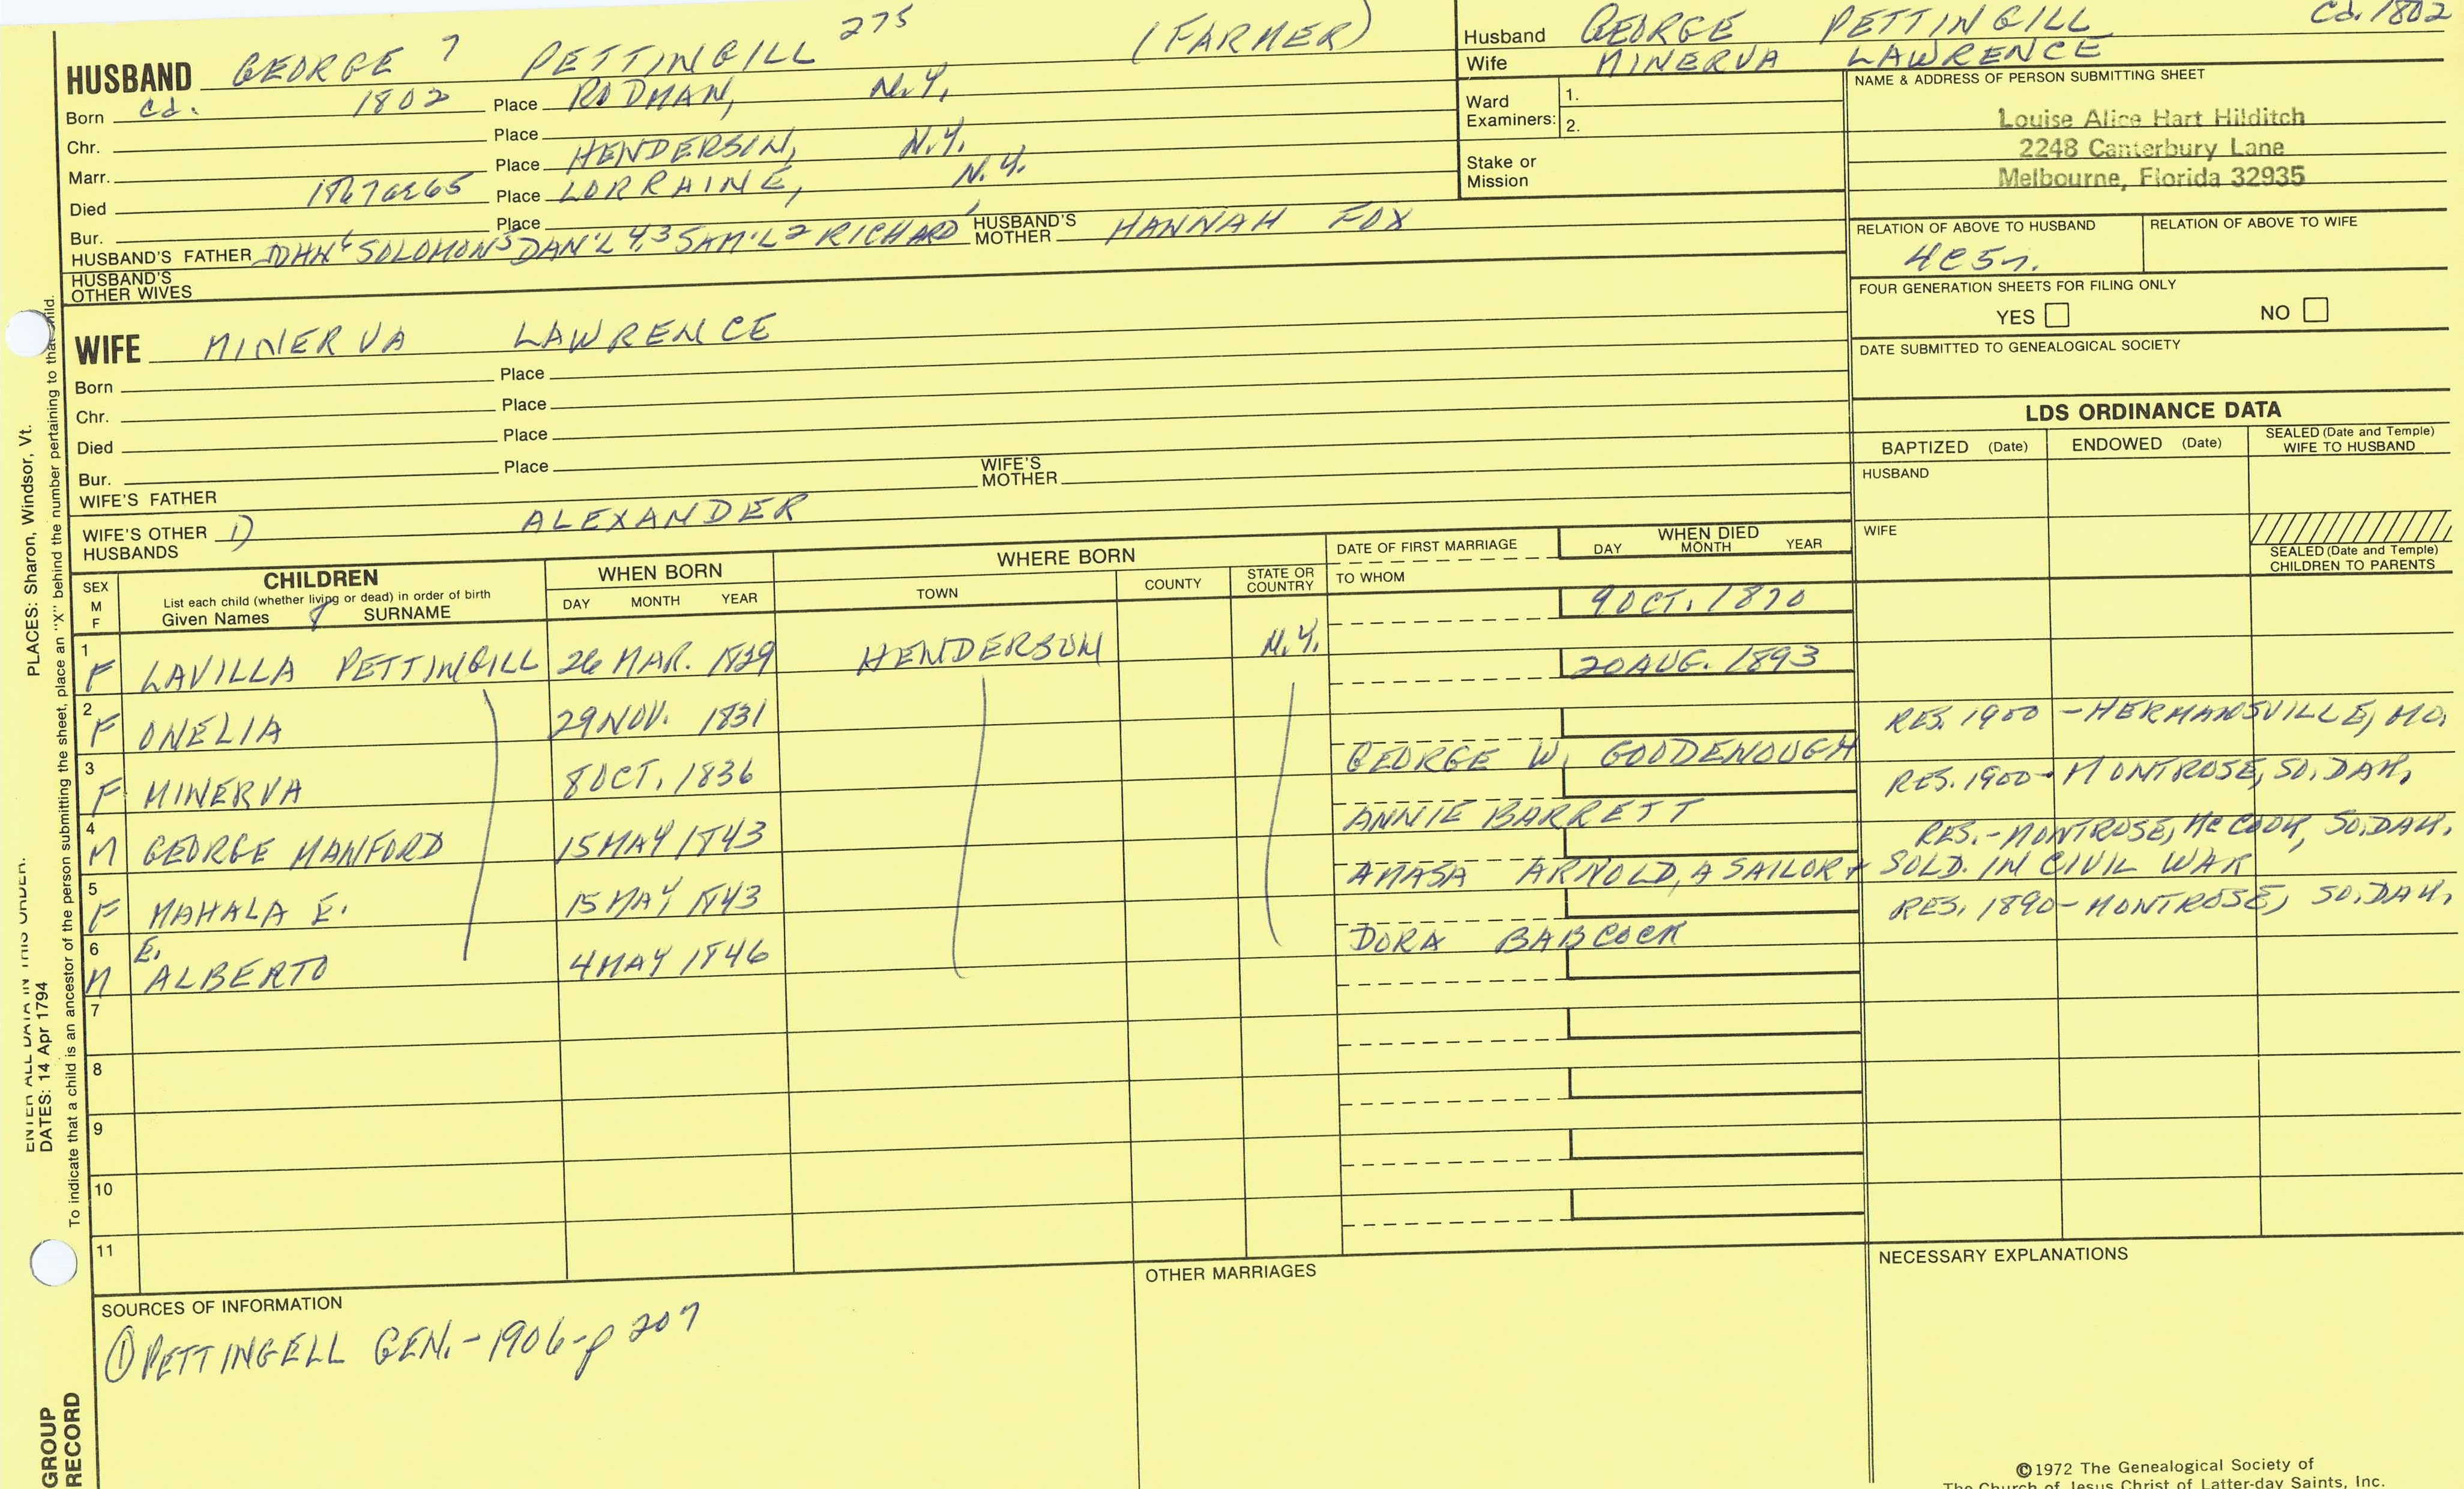 HUSBAND GEORGE 7 PETTINGILL 275 (FARMER)
Born ca. 1802 Place RODMAN, N.Y.
Chr. Place
Marr. Place HENDERSON, N.Y.
Died Place LORRAINE, N.Y.
Bur. Place
HUSBAND'S FATHER JOHN 6 SOLOMON 5 DAN'L 4,3 SAM'L 2 RICHARD 1 HUSBAND'S MOTHER HANNAH FOX
HUSBAND'S OTHER WIVES
WIFE MINERVA LAWRENCE
Born Place
Chr. Place
Died Place
Bur. Place
WIFE'S FATHER WIFE'S MOTHER
WIFE'S OTHER HUSBANDS 1) ALEXANDER
Husband GEORGE PETTINGILL ca. 1802
Wife MINERVA LAWRENCE
Ward Examiners: 1.
2.
Stake or Mission
NAME & ADDRESS OF PERSON SUBMITTING SHEET
Louise Alice Hart Hilditch
2248 Canterbury Lane
Melbourne, Florida 32935
RELATION OF ABOVE TO HUSBAND RELATION OF ABOVE TO WIFE
4C5r.
FOUR GENERATION SHEETS FOR FILING ONLY
YES NO
DATE SUBMITTED TO GENEALOGICAL SOCIETY
LDS ORDINANCE DATA
BAPTIZED (Date) ENDOWED (Date) SEALED (Date and Temple) WIFE TO HUSBAND
HUSBAND
WIFE
SEALED (Date and Temple) CHILDREN TO PARENTS
SEX M F
CHILDREN
List each child (whether living or dead) in order of birth
Given Names 8 SURNAME
WHEN BORN
DAY MONTH YEAR
WHERE BORN
TOWN COUNTY STATE OR COUNTRY
DATE OF FIRST MARRIAGE
TO WHOM
WHEN DIED
DAY MONTH YEAR
1 F LAVILLA PETTINGILL 26 MAR. 1829 HENDERSON N.Y. 9 OCT. 1870
2 F ONELIA 29 NOV. 1831 20 AUG. 1893
3 F MINERVA 8 OCT. 1836 GEORGE W. GOODENOUGH RES. 1900 - HERMANSVILLE, MO.
4 M GEORGE MANFORD 15 MAY 1843 ANNIE BARRETT RES. 1900 - MONTROSE, SO. DAK.
5 F MAHALA E. 15 MAY 1843 AMASA ARNOLD, A SAILOR + SOLD. IN CIVIL WAR RES. - MONTROSE, McCOOK, SO. DAK.
6 M E. ALBERTO 4 MAY 1846 DORA BABCOCK RES. 1890 - MONTROSE, SO. DAK.
7
8
9
10
11
SOURCES OF INFORMATION
① PETTINGELL GEN. - 1906 - p 207
OTHER MARRIAGES
NECESSARY EXPLANATIONS
©1972 The Genealogical Society of
The Church of Jesus Christ of Latter-day Saints, Inc.
ENTER ALL DATA IN THIS ORDER:
DATES: 14 Apr 1794
PLACES: Sharon, Windsor, Vt.
To indicate that a child is an ancestor of the person submitting the sheet, place an "X" behind the number pertaining to that child.
GROUP
RECORD